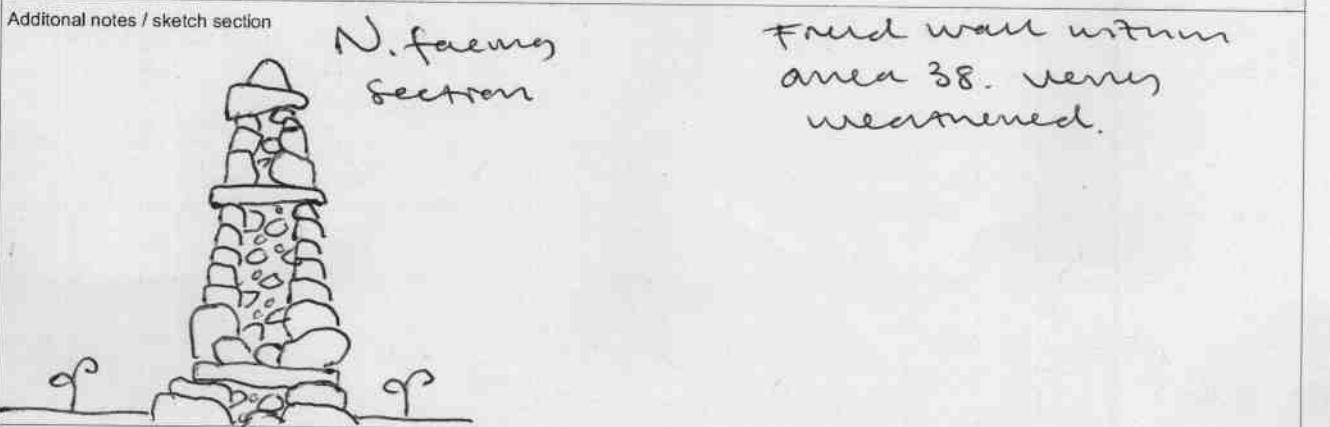 Additonal notes / sketch section
N. facing
section
Field wall within
area 38. very
weathered.